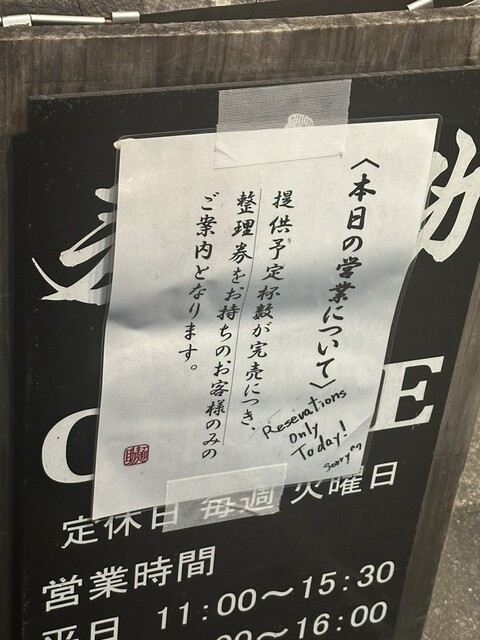 〈本日の営業について〉
提供予定杯数が完売につき、
整理券をお持ちのお客様のみの
ご案内となります。
Resevations
only
Today!
sorry
定休日 毎週 火曜日
営業時間
平日 11:00〜15:30
00〜16:00